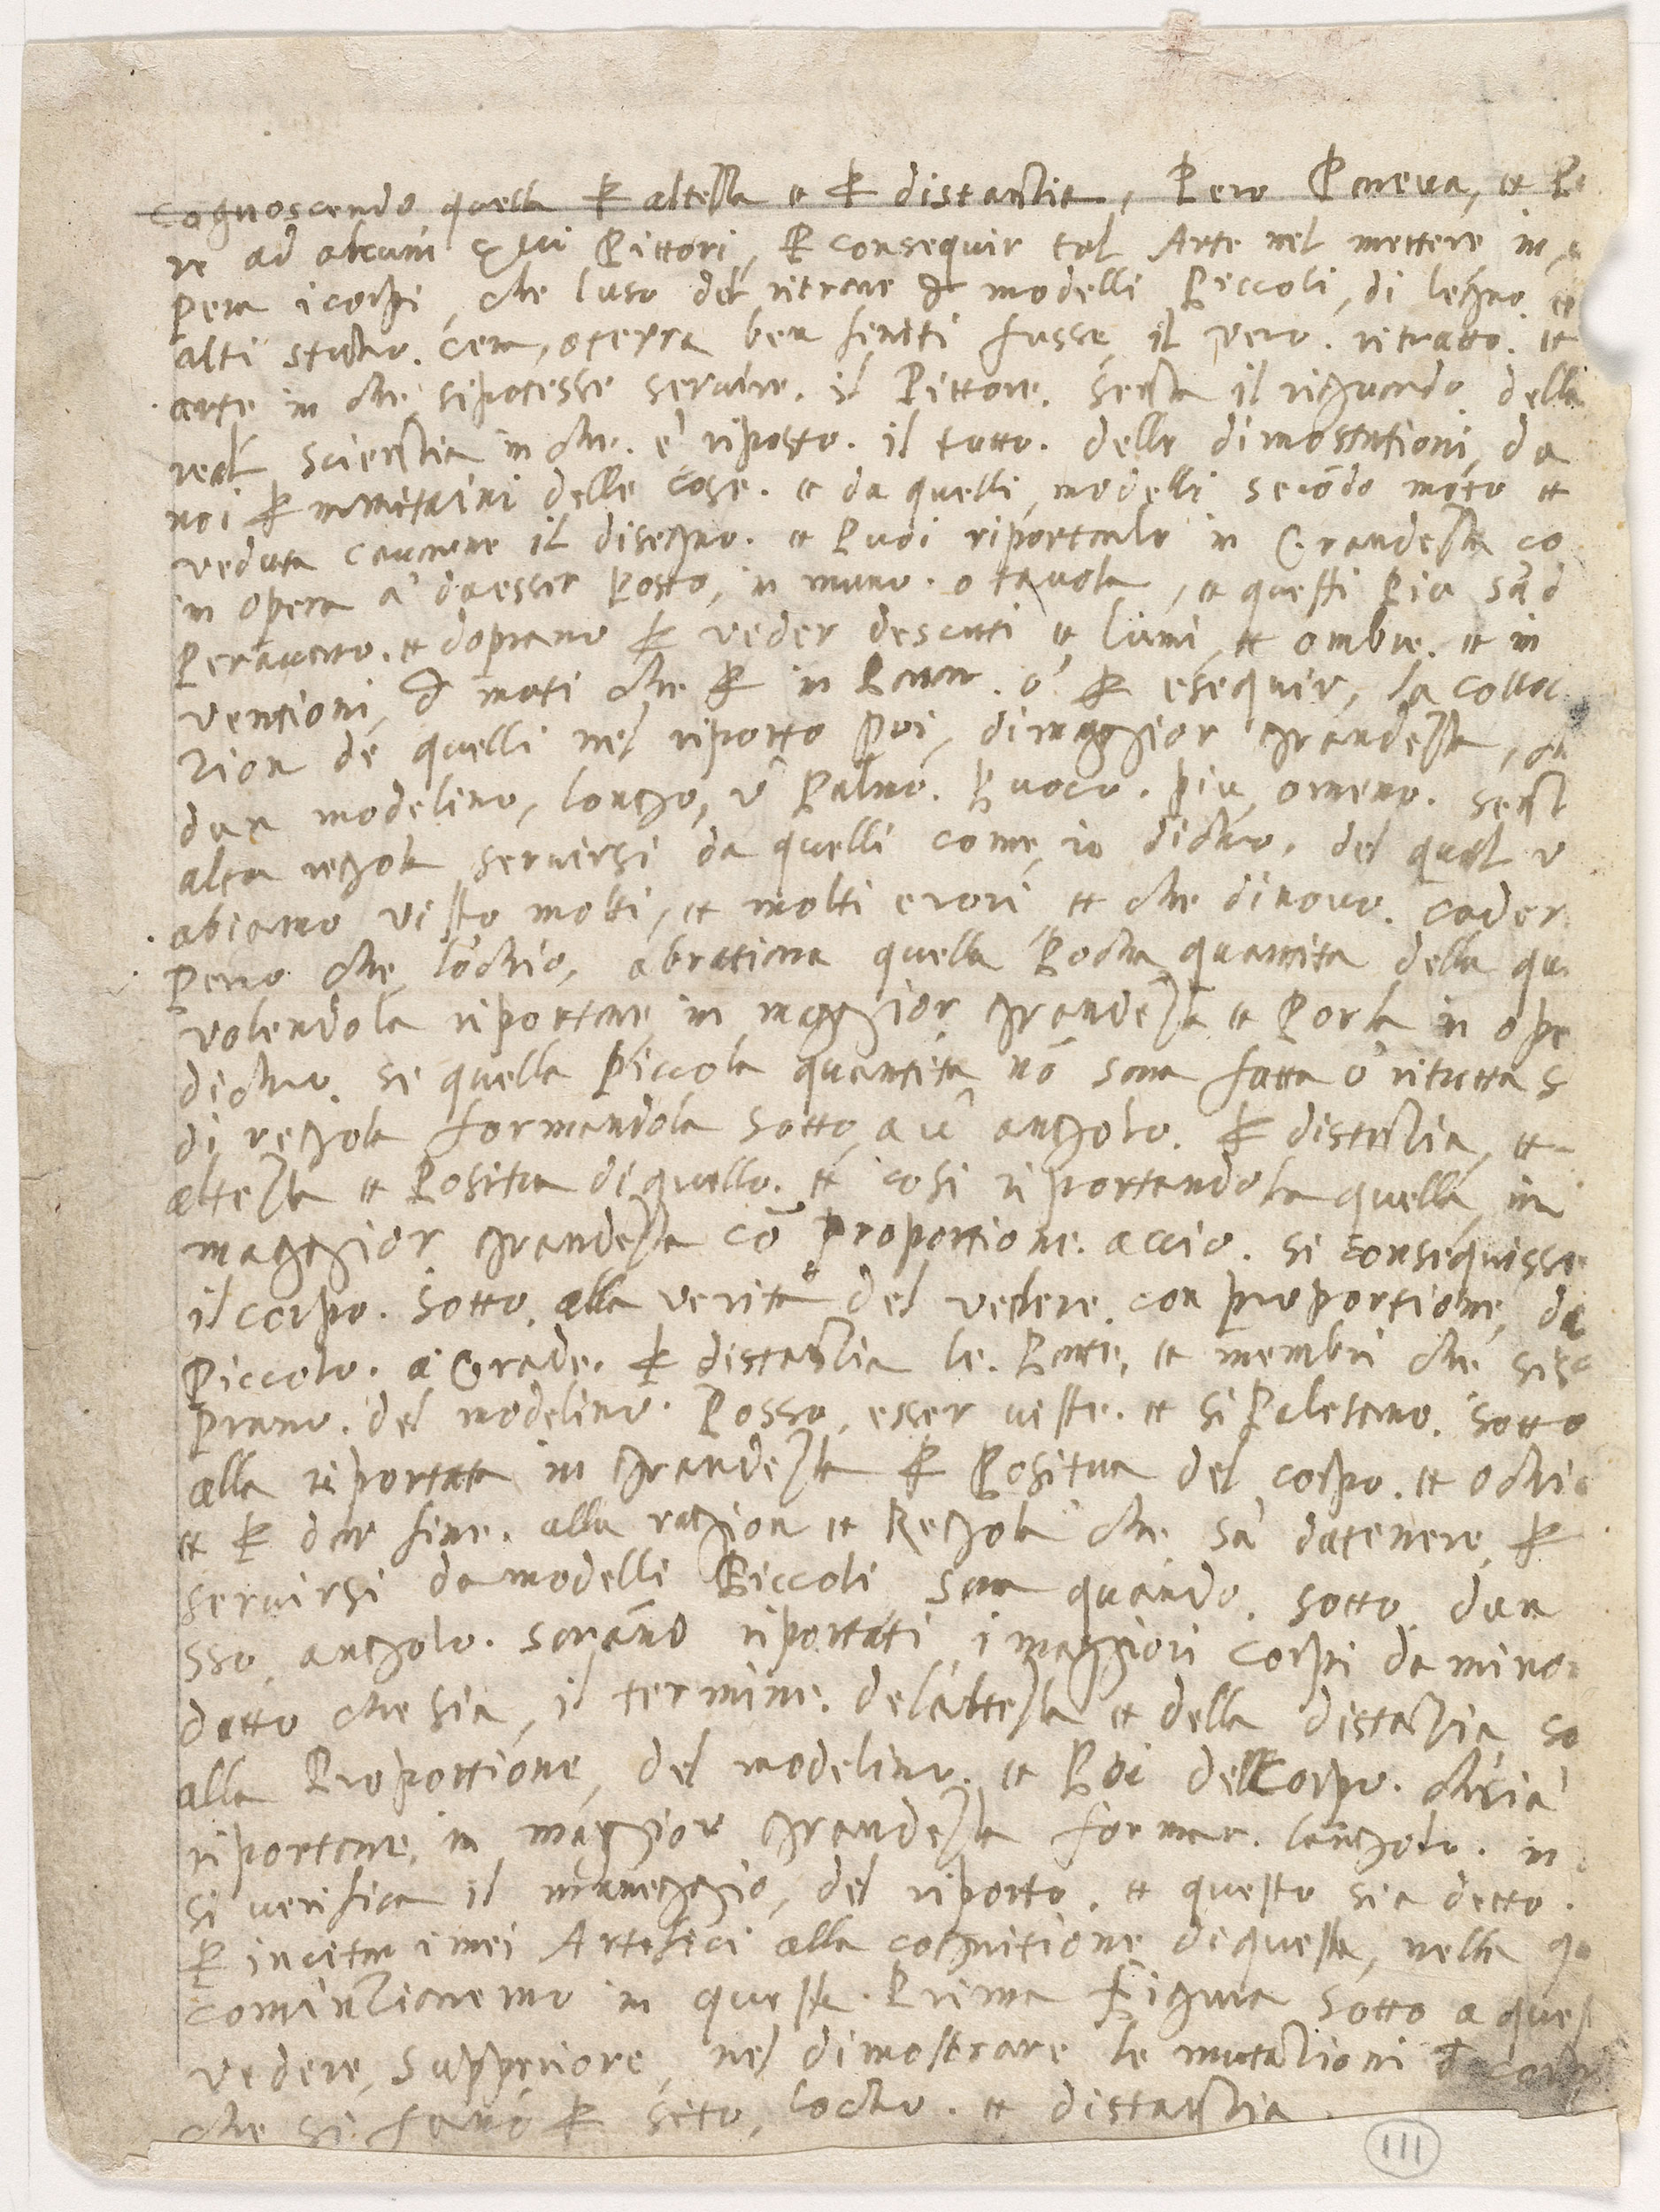 cognoscendo quella ꝑ altezza et ꝑ distantia, Pero Pareva, et Pa
re ad alcuni Pittori, ꝑ consequir tal Arte nel mettere in o
pera i corpi, che luso del ritrare modelli Piccoli, di legno et
alti stucho. cera, o terra ben finiti fusse, il vero. ritratto. et
arte in che, si potesse servire. il Pittore. senza il riguardo della
real scientia in che. e riposto. il tutto. delle dimostrationi, da
noi ꝑ delle cose. et da quelli, modelli secōdo moto et
veduta cavarne il disegno. et Puoi riportarlo in Grandezza co
in opera a da esser Posto, in muro. o tavola, et questi Piu sā d
et doprano ꝑ veder descurti et lumi, et ombre. et in
ventioni, moti che ꝑ in o ꝑ esequir, la colloc
tion de quelli nel riporto Poi, di maggior grandezza, ch
dun modelino, longo, ū Palmo. Puoco. piu, o meno. senz
altra regola servirsi da quelli come, io dicho, del qual v
abiamo visto molti, et molti erori et che di novo. cader
Pero che lochio, abraciara quella Pocha quantita della qu
volendola riportare in maggior grandezza et Porla in ope
dicho. se quella Piccola quantita nō sara fatta o ritratta s
di regola formandola sotto, a ū angolo. ꝑ distantia, et
altezza et Positura di quello. et cosi riportandola quella, in
maggior grandezza cō proportione. accio. si consequisse
il corpo. sotto. alla verita del vedere, con proportione, da
Piccolo. a Grāde. ꝑ distantia le. Parte, et membri che si sc
prano. del modelino. Posso, esser viste. et si Paletano. sotto
alla riportata in grandezza ꝑ Positura del corpo. et ochio
et ꝑ dar fine. alla ragion et Regola che sa da tenere, ꝑ
servirsi da modelli Piccoli sara quando. sotto, dun
sso, angolo. sarāno riportati, i maggiori corpi da minor
datto che sia, il termine. del altezza et della distantia, so
alla Proportione, del modelino. et Poi del Corpo. che sia
riportare, in maggior grandezza formar. langolo. in
si verifica il maneggio, del riporto. et questo sia detto.
ꝑ incitar i miei Artefici alla cognitione di questa, nella qu
cominzieremo in questa. Prima Figura sotto a quest
vedere, Supperiore, nel dimostrare le mutationi
che si fano ꝑ sito, locho. et distantia.
111